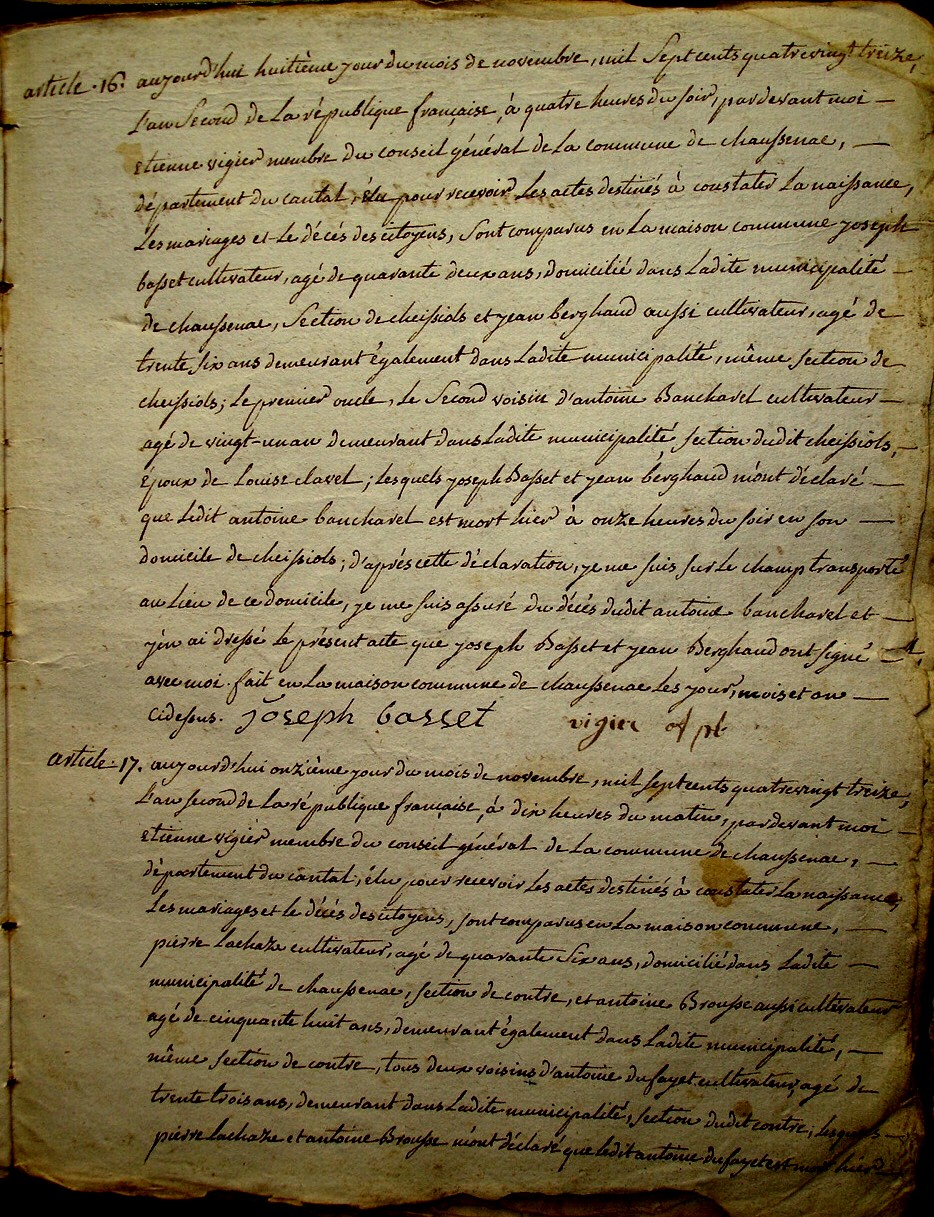 article .16. aujourd'hui huitième jour du mois de novembre, mil sept cents quatrevingt treize,
l'an second de la république française, à quatre heures du soir, pardevant moi —
etienne vigier membre du conseil général de la commune de chaussenac, —
département du cantal, élu pour recevoir les actes destinés à constater la naissance,
les mariages et le décés des citoyens, sont comparus en la maison commune joseph
basset cultivateur, agé de quarante deux ans, domicilié dans ladite municipalité —
de chaussenac, section de cheissiols et jean berghaud aussi cultivateur, agé de
trente six ans demeurant également dans ladite municipalité, même section de
cheissiols; le premier oncle, le second voisin d'antoine Bancharel cultivateur —
agé de vingt-un an demeurant dans ladite municipalité section dudit cheissiols, —
époux de louise clavel; lesquels joseph Basset et jean berghaud m'ont déclaré —
que ledit antoine bancharel est mort hier à onze heures du soir en son —
domicile de cheissiols; d'après cette déclaration, je me suis sur le champ transporté
au lieu de ce domicile, je me suis assuré du décés dudit antoine bancharel et —
j'en ai dressé le présent acte que joseph Basset et jean Berghaud ont signé —
avec moi. fait en la maison commune de chaussenac les jour, mois et an —
cidessus. joseph basset vigier of pb
article .17. aujourd'hui onzième jour du mois de novembre, mil sept cents quatrevingt treize,
l'an second de la république française, à dix heures du matin, pardevant moi —
etienne vigier membre du conseil général de la commune de chaussenac, —
département du cantal, élu pour recevoir les actes destinés à constater la naissance,
les mariages et le décés des citoyens, sont comparus en la maison commune, —
pierre lachaze cultivateur, agé de quarante six ans, domicilié dans ladite —
municipalité de chaussenac, section de contre, et antoine Brousse aussi cultivateur
agé de cinquante huit ans, demeurant également dans ladite municipalité, —
même section de contre, tous deux voisins d'antoine dufayet cultivateur, agé de
trente trois ans, demeurant dans ladite municipalité, section dudit contre; lesquels —
pierre lachaze et antoine Brousse m'ont déclaré que ledit antoine dufayet est mort hier